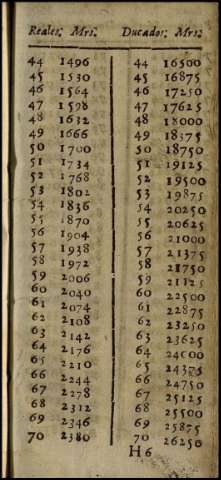 Reales. Mrs. Ducados. Mrs.
44 1496 44 16500
45 1530 45 16875
46 1564 46 17250
47 1598 47 17625
48 1632 48 18000
49 1666 49 18375
50 1700 50 18750
51 1734 51 19125
52 1768 52 19500
53 1802 53 19875
54 1836 54 20250
55 1870 55 20625
56 1904 56 21000
57 1938 57 21375
58 1972 58 21750
59 2006 59 21125
60 2040 60 22500
61 2074 61 22875
62 2108 62 23250
63 2142 63 23625
64 2176 64 24000
65 2210 65 24375
66 2244 66 24750
67 2278 67 25125
68 2312 68 25500
69 2346 69 25875
70 2380 70 26250
H 6